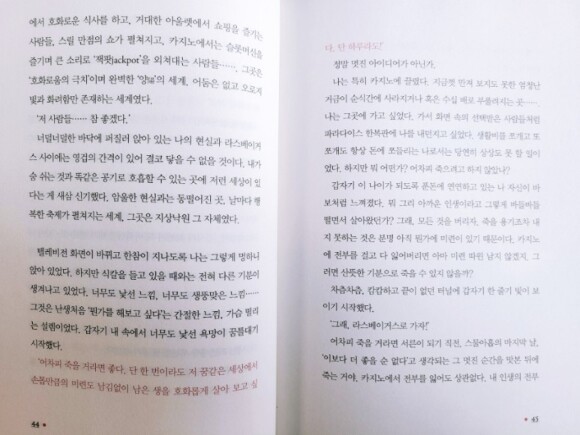 에서 호화로운 식사를 하고, 거대한 아울렛에서 쇼핑을 즐기는
사람들, 스릴 만점의 쇼가 펼쳐지고, 카지노에서는 슬롯머신을
즐기며 큰 소리로 '잭팟jackpot'을 외쳐대는 사람들……. 그곳은
'호화로움의 극치'이며 완벽한 '양陽'의 세계, 어둠은 없고 오로지
빛과 화려함만 존재하는 세계였다.
'저 사람들…… 참 좋겠다.'
너덜너덜한 바닥에 퍼질러 앉아 있는 나의 현실과 라스베이거
스 사이에는 영겁의 간격이 있어 결코 닿을 수 없을 것이다. 내가
숨 쉬는 것과 똑같은 공기로 호흡할 수 있는 곳에 저런 세상이 있
다는 게 새삼 신기했다. 암울한 현실과는 동떨어진 곳, 날마다 행
복한 축제가 펼쳐지는 세계, 그곳은 지상낙원 그 자체였다.
텔레비전 화면이 바뀌고 한참이 지나도록 나는 그렇게 멍하니
앉아 있었다. 하지만 식칼을 들고 있을 때와는 전혀 다른 기분이
생겨나고 있었다. 너무도 낯선 느낌, 너무도 생뚱맞은 느낌……
그것은 난생처음 '뭔가를 해보고 싶다'는 간절한 느낌, 가슴 떨리
는 설렘이었다. 갑자기 내 속에서 너무도 낯선 욕망이 꿈틀대기
시작했다.
'어차피 죽을 거라면 좋다. 단 한 번이라도 저 꿈같은 세상에서
손톱만큼의 미련도 남김없이 남은 생을 호화롭게 살아 보고 싶
44
다, 단 하루라도!'
정말 멋진 아이디어가 아닌가.
나는 특히 카지노에 끌렸다. 지금껏 만져 보지도 못한 엄청난
거금이 순식간에 사라지거나 혹은 수십 배로 부풀려지는 곳……
나는 그곳에 가고 싶었다. 가서 화면 속의 선택받은 사람들처럼
파라다이스 한복판에 나를 내던지고 싶었다. 생활비를 쪼개고 또
쪼개도 항상 돈에 쪼들리는 나로서는 당연히 상상도 못 할 일이
었다. 하지만 뭐 어떤가? 어차피 죽으려고 하지 않았나?
갑자기 이 나이가 되도록 푼돈에 연연하고 있는 나 자신이 바
보처럼 느껴졌다. 뭐 그리 아까운 인생이라고 그렇게 바들바들
떨면서 살아왔던가? 그래, 모든 것을 버리자. 죽을 용기조차 내
지 못하는 것은 분명 아직 뭔가에 미련이 있기 때문이다. 카지노
에 전부를 걸고 다 잃어버리면 아마 미련 따윈 남지 않겠지. 그
러면 산뜻한 기분으로 죽을 수 있지 않을까?
차츰차츰, 캄캄하고 끝이 없던 터널에 갑자기 한 줄기 빛이 보
이기 시작했다.
'그래, 라스베이거스로 가자!'
어차피 죽을 거라면 서른이 되기 직전, 스물아홉의 마지막 날,
'이보다 더 좋을 순 없다'고 생각되는 그 멋진 순간을 맛본 뒤에
죽는 거야. 카지노에서 전부를 잃어도 상관없다. 내 인생의 전부
45